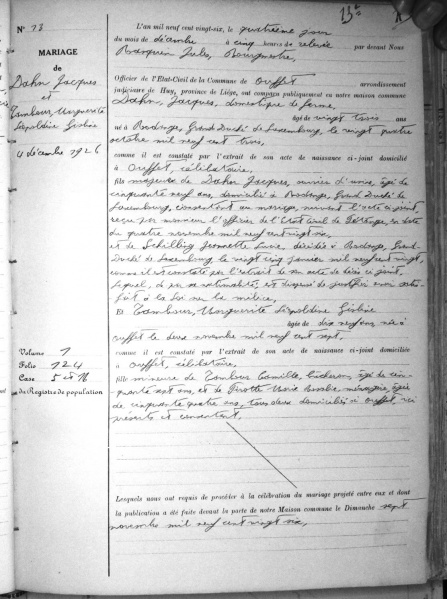 N° 13
MARIAGE
de
Dahm Jacques
et
Tambour, Marguerite
Léopoldine Gisline
4 décembre 1926
Volume 1
Folio 124
Case 5 et 16
du Registre de population
L'an mil neuf cent vingt-six, le quatrième jour
du mois de décembre à cinq heures de relevée par devant Nous
Jules, Bourgmestre,
Officier de l'Etat-Civil de la Commune de Ouffet arrondissement
judiciaire de Huy, province de Liége, ont comparu publiquement en notre maison commune
Dahm, Jacques, domestique de ferme,
âgé de vingt trois ans
né à Rodange, Grand Duché de Luxembourg, le vingt quatre
octobre mil neuf cent trois,
comme il est constaté par l'extrait de son acte de naissance ci-joint domicilié
à Ouffet, célibataire,
fils majeur de Dahm Jacques, ouvrier d'usine, âgé de
cinquante sept ans, domicilié à Rodange, Grand Duché de
Luxembourg, consentant au mariage suivant l'acte ci-joint
reçu par monsieur l'officier de l'Etat Civil de Pétange, en date
du quatre novembre mil neuf cent vingt six,
et de Schilling Jeannette Lucie, décédée à Rodange, Grand-
Duché de Luxembourg le vingt cinq janvier mil neuf cent vingt,
comme il est constaté par l'extrait de son acte de décès ci-joint.
Lequel, de par sa nationalité, est dispensé de justifier avoir satis-
fait à la loi sur la milice,
Et Tambour, Marguerite Léopoldine Gisline
âgée de dix neuf ans, née à
Ouffet le deux novembre mil neuf cent sept,
comme il est constaté par l'extrait de son acte de naissance ci-joint domiciliée
à Ouffet, célibataire,
fille mineure de Tambour Camille, âgé de cin-
quante sept ans, et de Pirotte Marie ménagère, âgée
de cinquante quatre ans, tous deux domiciliés à Ouffet, ici
présents et consentant,
Lesquels nous ont requis de procéder à la célébration du mariage projeté entre eux et dont
la publication a été faite devant la porte de notre Maison commune le Dimanche sept
novembre mil neuf cent vingt six,